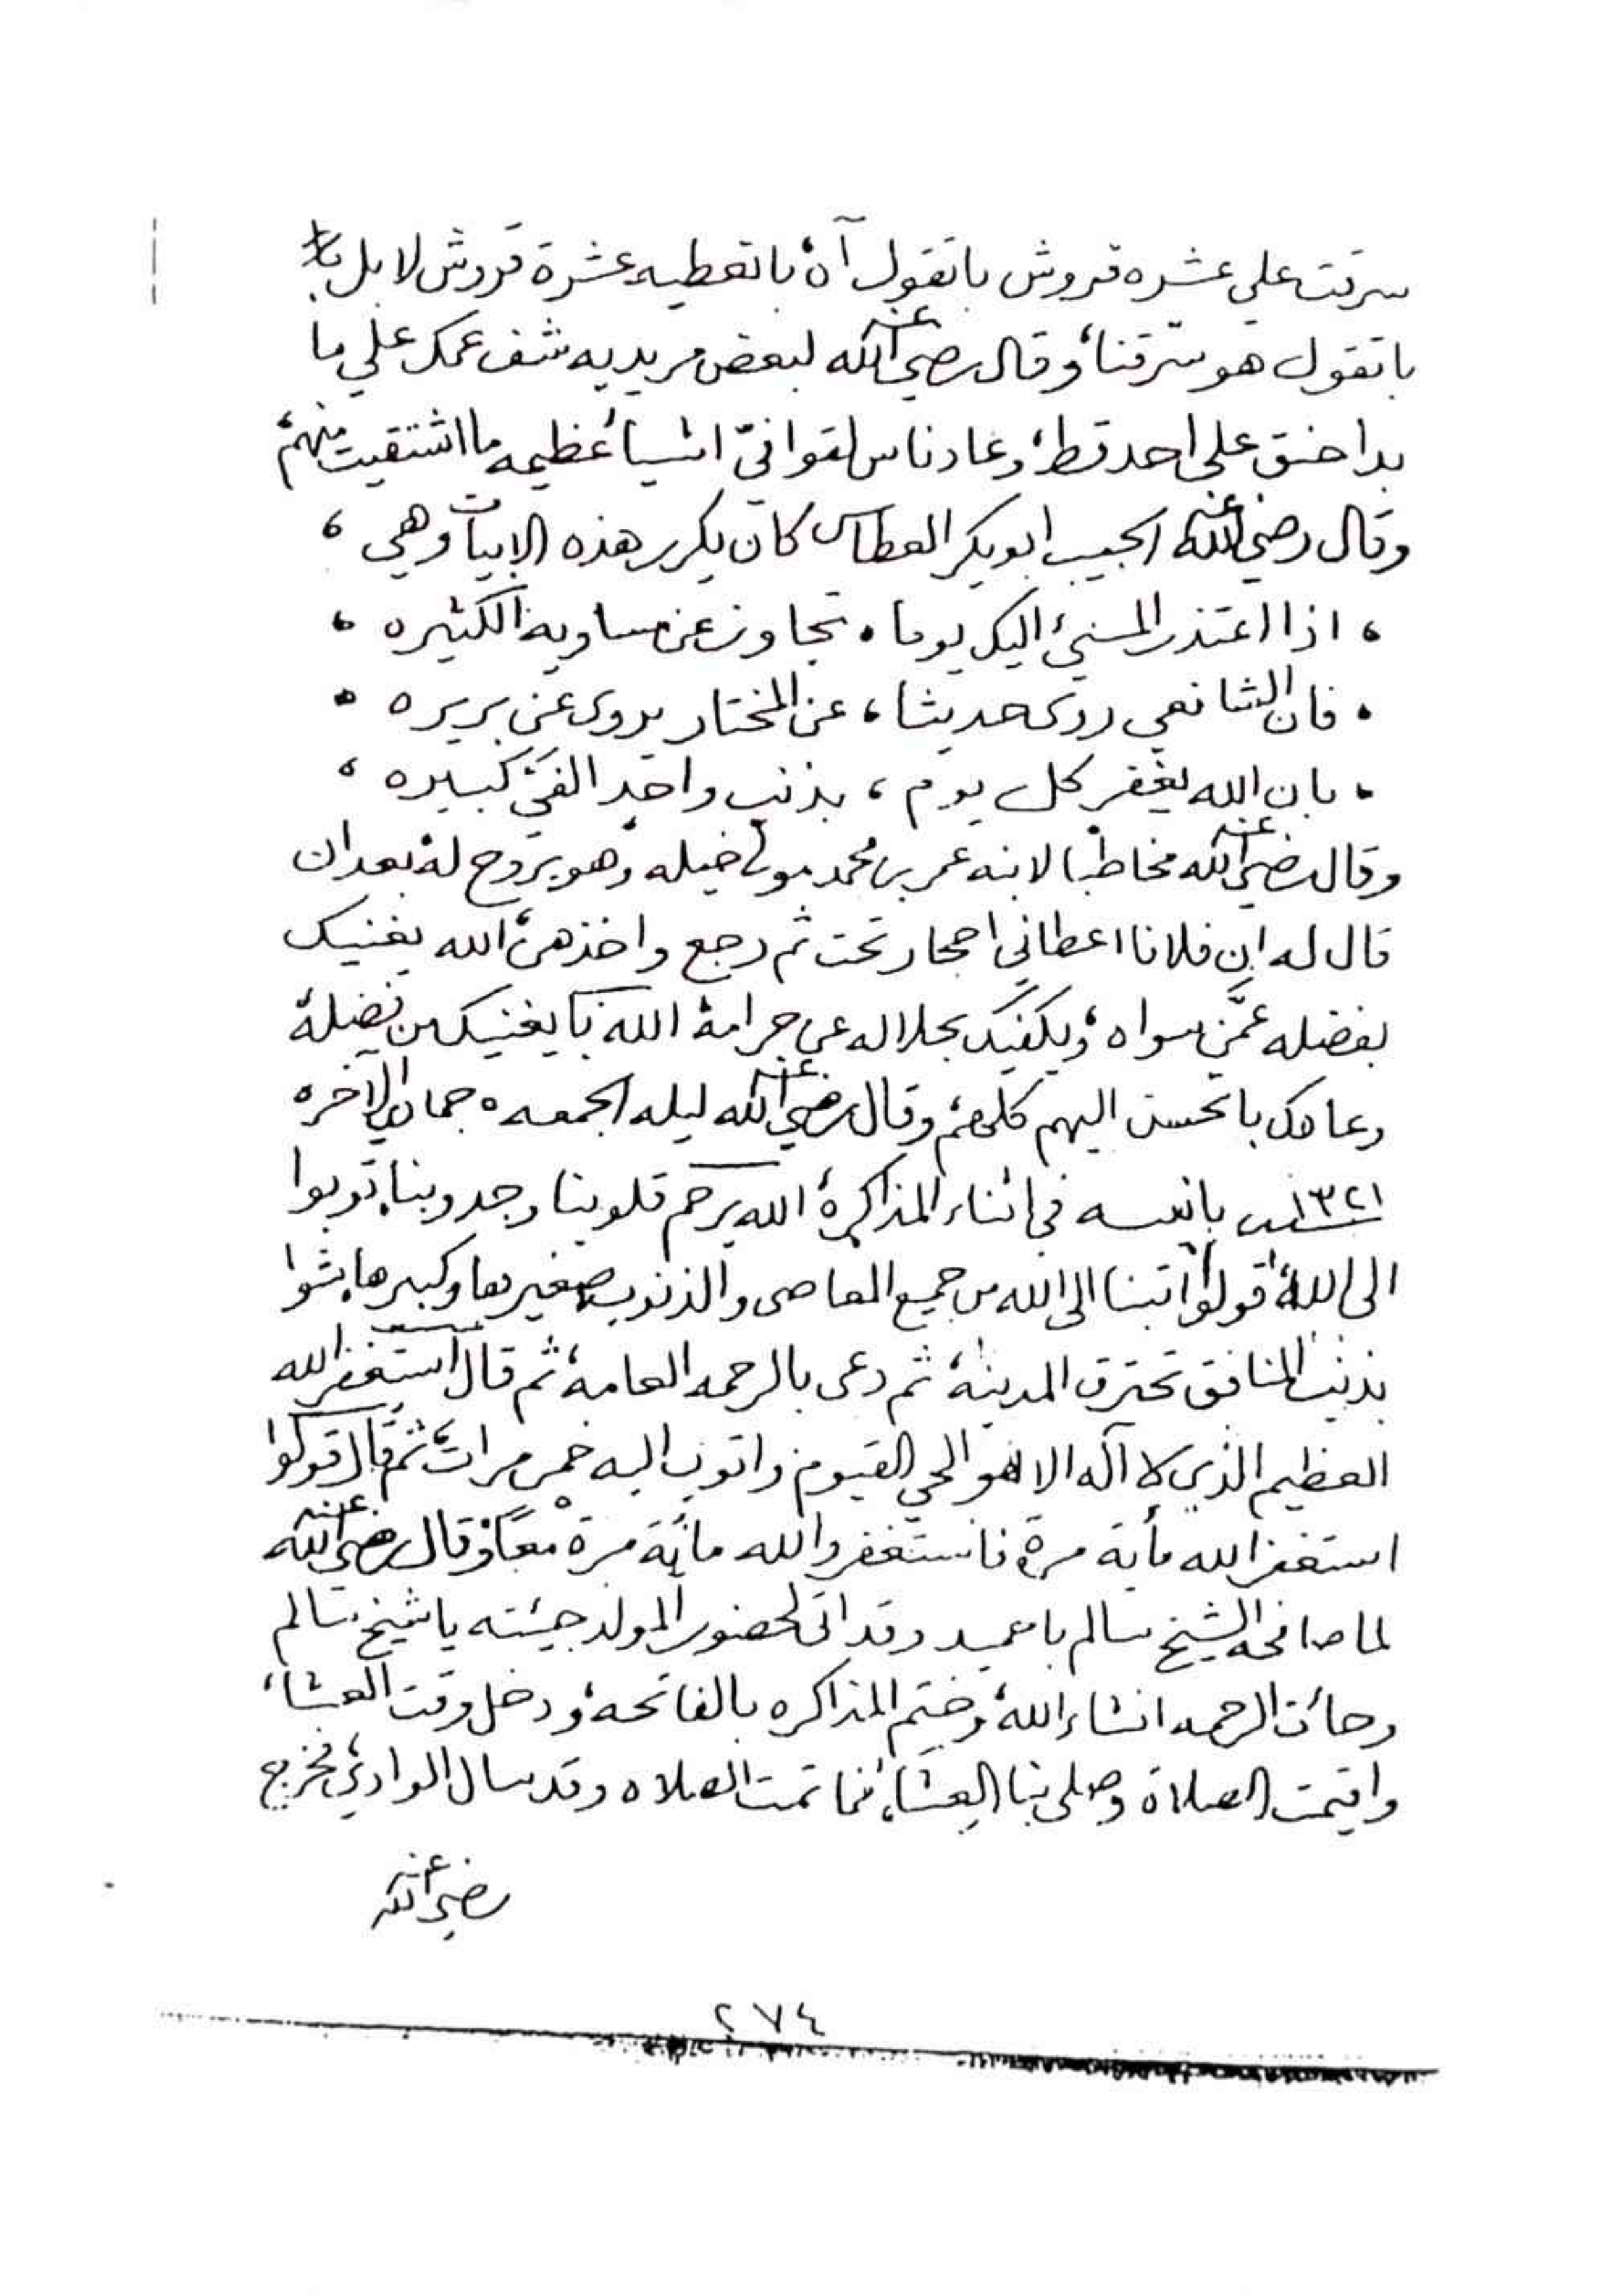 سرقت علي عشره قروش باتقول آه باتعطيه عشرة قروش لا بل
باتقول هو سرقنا، وقال رضي الله عنه لبعض مريديه شف عمك علي ما
بدا خنق على احد قط، وعاد ناس لقوا فيّ اشيا عظيمه ما اشتقيت منهم،
وقال رضي الله عنه الحبيب ابوبكر العطاس كان يكرر هذه الابيات وهي ،
، اذا اعتذر المسئ اليك يوما ، تجاوز عن مساويه الكثيره ،
، فان الشافعي روى حديثا ، عن المختار يروى عن بريره ،
، بان الله يغفر كل يوم ، بذنب واحد الفيْ كبيره ،
وقال رضي الله عنه مخاطبا لابنه عمر بن محمد مولى خيله وهو يروح له بعد ان
قال له ان فلانا اعطاني احجار تحت ثم رجع واخذهن، الله يغنيك
بفضله عمّن سواه، ويكفيك بحلاله عن حرامه الله بايغنيك من فضله
وعادك باتحسن اليهم كلهم، وقال رضي الله عنه ليله الجمعه ٥ جمادى الآخره
١٣٢١ سنه بانيسه في اثناء المذاكرة، الله يرحم قلوبنا وجدوبنا، توبوا
الى الله، قولوا تبنا الى الله من جميع المعاصى والذنوب صغيرها وكبيرها،
بذنب المنافق تحترق المدينة، ثم دعى بالرحمه العامه، ثم قال استغفر الله
العظيم الذي لا آله الا هو الحي القيوم واتوب اليه خمس مرات، ثم قال قولوا
استغفر الله مأية مرة، فاستغفروا الله مائة مرة معًا، وقال رضي الله عنه
لما صافحه الشيخ سالم باعميد وقد اتى لحضور المولد جيئته ياشيخ سالم
وجأت الرحمه انشاء الله، وختم المذاكره بالفاتحه، ودخل وقت العشاء،
واقيمت الصلاة وصلى بنا العشاء، فما تمت الصلاه وقد سال الوادي، فخرج
رضي الله عنه
٢٧٤